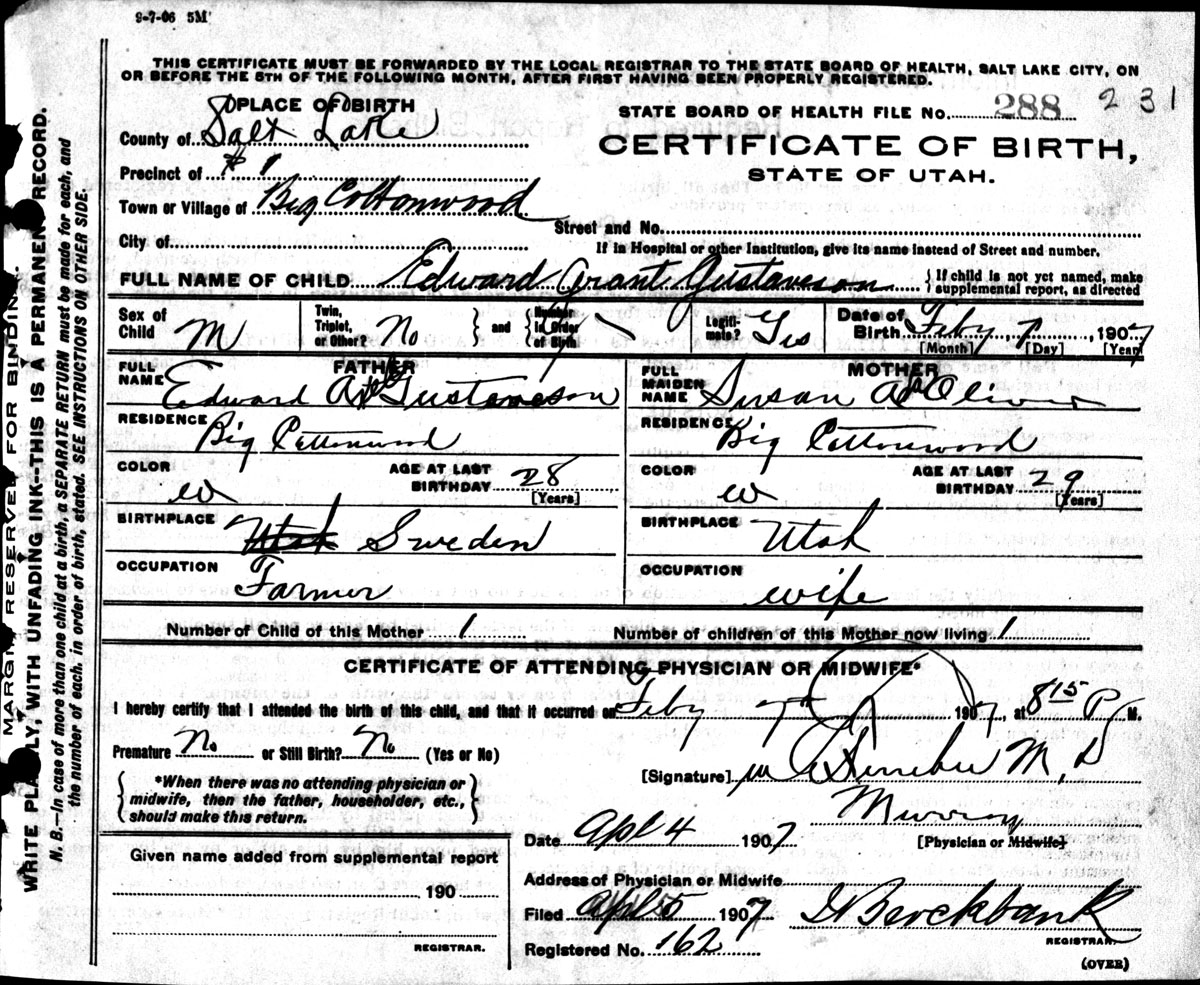 9-7-06 5M
THIS CERTIFICATE MUST BE FORWARDED BY THE LOCAL REGISTRAR TO THE STATE BOARD OF HEALTH, SALT LAKE CITY, ON
OR BEFORE THE 5TH OF THE FOLLOWING MONTH, AFTER FIRST HAVING BEEN PROPERLY REGISTERED.
PLACE OF BIRTH
County of Salt Lake
Precinct of # 1
Town or Village of Big Cottonwood
City of
STATE BOARD OF HEALTH FILE No. 288 231
CERTIFICATE OF BIRTH,
STATE OF UTAH.
Street and No.
If in Hospital or other Institution, give its name instead of Street and number.
FULL NAME OF CHILD Edward Grant Gustaveson
If child is not yet named, make
supplemental report, as directed
Sex of Child M
Twin, Triplet, or Other? No
and Number in Order of Birth
Legiti-mate? Yes
Date of Birth Feby 7, 1907
[Month] [Day] [Year]
FATHER
FULL NAME Edward A Gustaveson
RESIDENCE Big Cottonwood
COLOR W
AGE AT LAST BIRTHDAY 28 [Years]
BIRTHPLACE Utah Sweden
OCCUPATION Farmer
MOTHER
FULL MAIDEN NAME Susan A Oliver
RESIDENCE Big Cottonwood
COLOR W
AGE AT LAST BIRTHDAY 29 [Years]
BIRTHPLACE Utah
OCCUPATION wife
Number of Child of this Mother 1
Number of children of this Mother now living 1
CERTIFICATE OF ATTENDING PHYSICIAN OR MIDWIFE*
I hereby certify that I attended the birth of this child, and that it occurred on Feby 7th 1907, at 8 15 P M.
Premature No or Still Birth? No (Yes or No)
*When there was no attending physician or
midwife, then the father, householder, etc.,
should make this return.
[Signature] M. D
Murray
[Physician or Midwife]
Date Apl 4 1907
Address of Physician or Midwife
Given name added from supplemental report
190
REGISTRAR.
Filed Apl 5 1907
Registered No. 162
REGISTRAR.
(OVER)
MARGIN RESERVED FOR BINDING.
WRITE PLAINLY, WITH UNFADING INK--THIS IS A PERMANENT RECORD.
N. B.--In case of more than one child at a birth, a SEPARATE RETURN must be made for each, and
the number of each, in order of birth, stated. SEE INSTRUCTIONS ON OTHER SIDE.